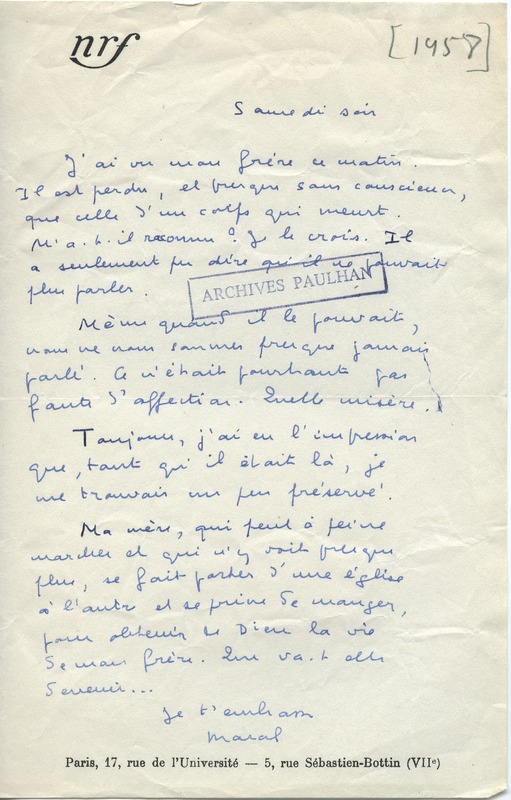 nrf
[1958]
Samedi soir
J'ai vu mon frère ce matin.
Il est perdu, et presque sans conscience,
que celle d'un corps qui meurt.
M'a-t-il reconnu ? Je le crois. Il
a seulement pu dire qu'il ne pouvait
plus parler.
ARCHIVES PAULHAN
Même quand il le pouvait,
nous ne nous sommes presque jamais
parlé. Ce n'était pourtant pas
faute d'affection. Quelle misère.
Toujours, j'ai eu l'impression
que, tant qu'il était là, je
me trouvais un peu préservé.
Ma mère, qui peut à peine
marcher et qui n'y voit presque
plus, se fait porter d'une église
à l'autre et se prive de manger,
pour obtenir de Dieu la vie
de mon frère. Que va-t-elle
devenir...
Je t'embrasse
Marcel
Paris, 17, rue de l'Université — 5, rue Sébastien-Bottin (VIIe)